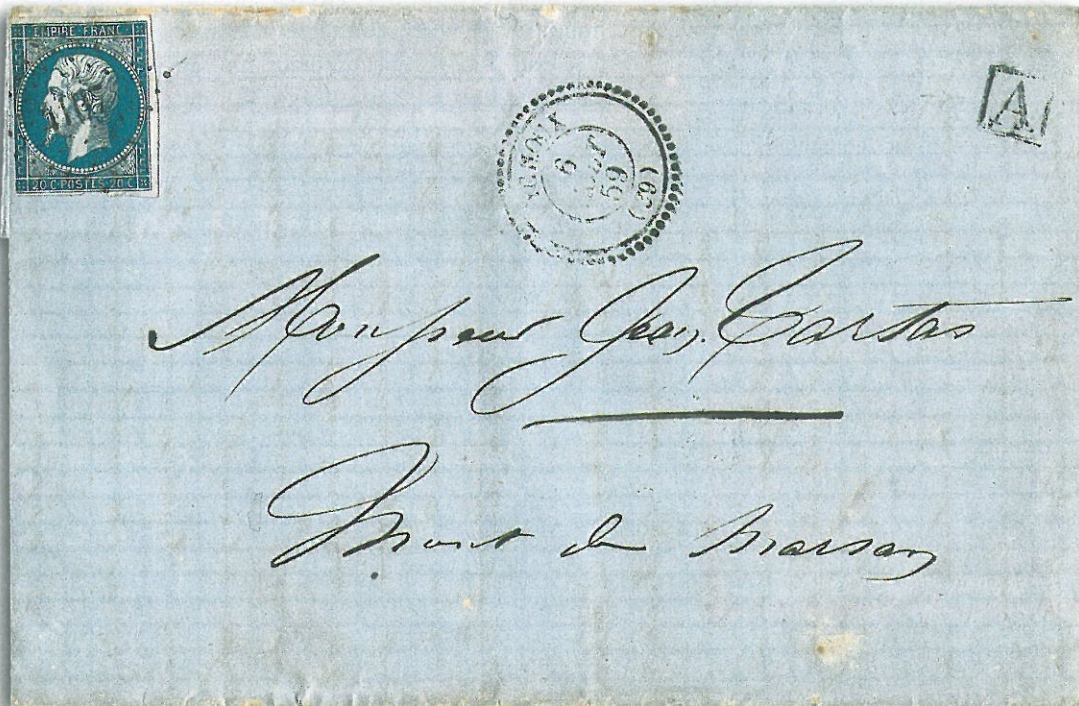 EMPIRE FRANC.
20 C. POSTES 20 C.
YCHOUX
(39)
A
Monsieur Jean Tartas
Mont de Marsan